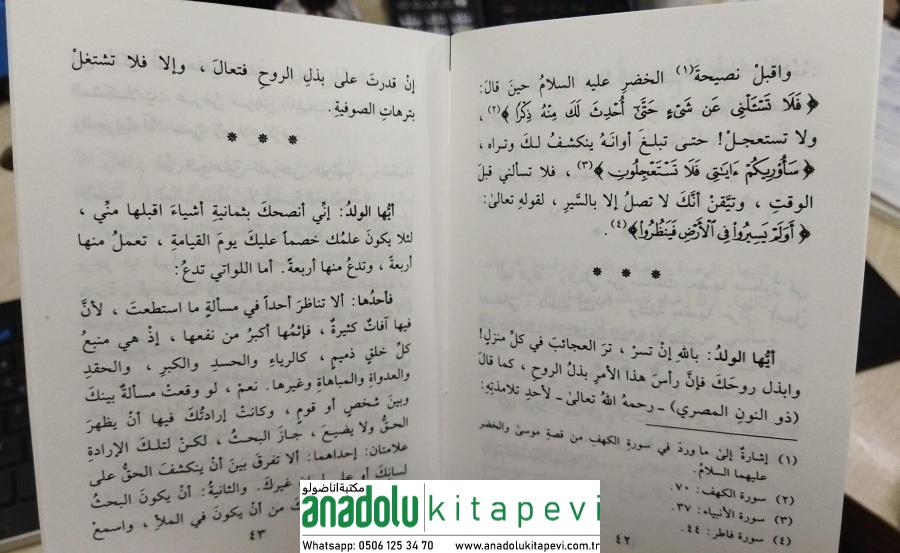 واقبلْ نصيحةَ(١) الخضرِ عليه السلامُ حينَ قالَ:
﴿ فَلَا تَسْـَٔلْنِى عَن شَىْءٍ حَتَّىٰٓ أُحْدِثَ لَكَ مِنْهُ ذِكْرًا ﴾(٢) ،
ولا تستعجلْ! حتى تبلغَ أوانَهُ ينكشفُ لكَ وتراه ،
﴿ سَأُوْرِيكُمْ ءَايَـٰتِى فَلَا تَسْتَعْجِلُونِ ﴾(٣) ، فلا تسألني قبلَ
الوقتِ ، وتيَّقنْ أنَّكَ لا تصلُ إلا بالسَّيرِ ، لقولهِ تعالىٰ:
﴿ أَوَلَمْ يَسِيرُوا۟ فِى ٱلْأَرْضِ فَيَنظُرُوا۟ ﴾(٤).
* * *
أيُّها الولدُ: باللهِ إنْ تسرْ ، ترَ العجائبَ في كلِّ منزلٍ!
وابذل روحَكَ فإنَّ رأسَ هذا الأمرِ بذلُ الروحِ ، كما قالَ
(ذو النونِ المصري) ـ رحمهُ اللهُ تعالىٰ ـ لأحدِ تلامذتِهِ:
(١) إشارةٌ إلىٰ ما وردَ في سورةِ الكهفِ من قصةِ موسىٰ والخضر
عليهما السلامُ.
(٢) سورة الكهف: ٧٠.
(٣) سورة الأنبياء: ٣٧.
(٤) سورة فاطر: ٤٤.
٤٢
إنْ قدرتَ على بذلِ الروحِ فتعالَ ، وإلا فلا تشتغلْ
بترهاتِ الصوفيةِ.
* * *
أيُّها الولدُ: إنِّي أنصحكَ بثمانيةِ أشياءَ اقبلها منِّي ،
لئلا يكونَ علمُك خصماً عليكَ يومَ القيامةِ ، تعملُ منها
أربعةً ، وتدعُ منها أربعةً. أما اللواتي تدعُ:
فأحدُها: ألا تناظرَ أحداً في مسألةٍ ما استطعتَ ، لأنَّ
فيها آفاتٌ كثيرةٌ ، فإثمُها أكبرُ من نفعها ، إذْ هي منبعُ
كلِّ خلقٍ ذميمٍ ، كالرياءِ والحسدِ والكبرِ ، والحقدِ
والعداوةِ والمباهاةِ وغيرها. نعم، لو وقعتْ مسألةٌ بينكَ
وبينَ شخصٍ أو قومٍ ، وكانتْ إرادتُكَ فيها أنْ يظهرَ
الحقُّ ولا يضيعَ ، جازَ البحثُ ، لكنْ لتلكَ الإرادةِ
علامتان: إحداهما: ألا تفرقَ بينَ أنْ ينكشفَ الحقُّ على
لسانِكَ أو على لسانِ غيركَ. والثانيةُ: أنْ يكونَ البحثُ
من أنْ يكونَ في الملأ ، واسمعْ
٤٣
مكتبة اناضولو
anadolu kitapevi
Whatsapp: 0506 125 34 70 www.anadolukitapevi.com.tr